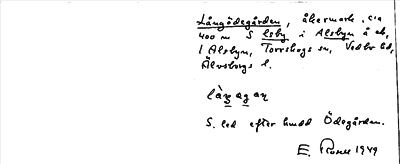 Långödegården, åkermark, c:a
400 m S Lsby i Alsbyn å ek,
1 Alsbyn, Torrskogs sn, Vedbo hd,
Älvsborgs l.
S. led efter hmdd Ödegården.
E. 1949